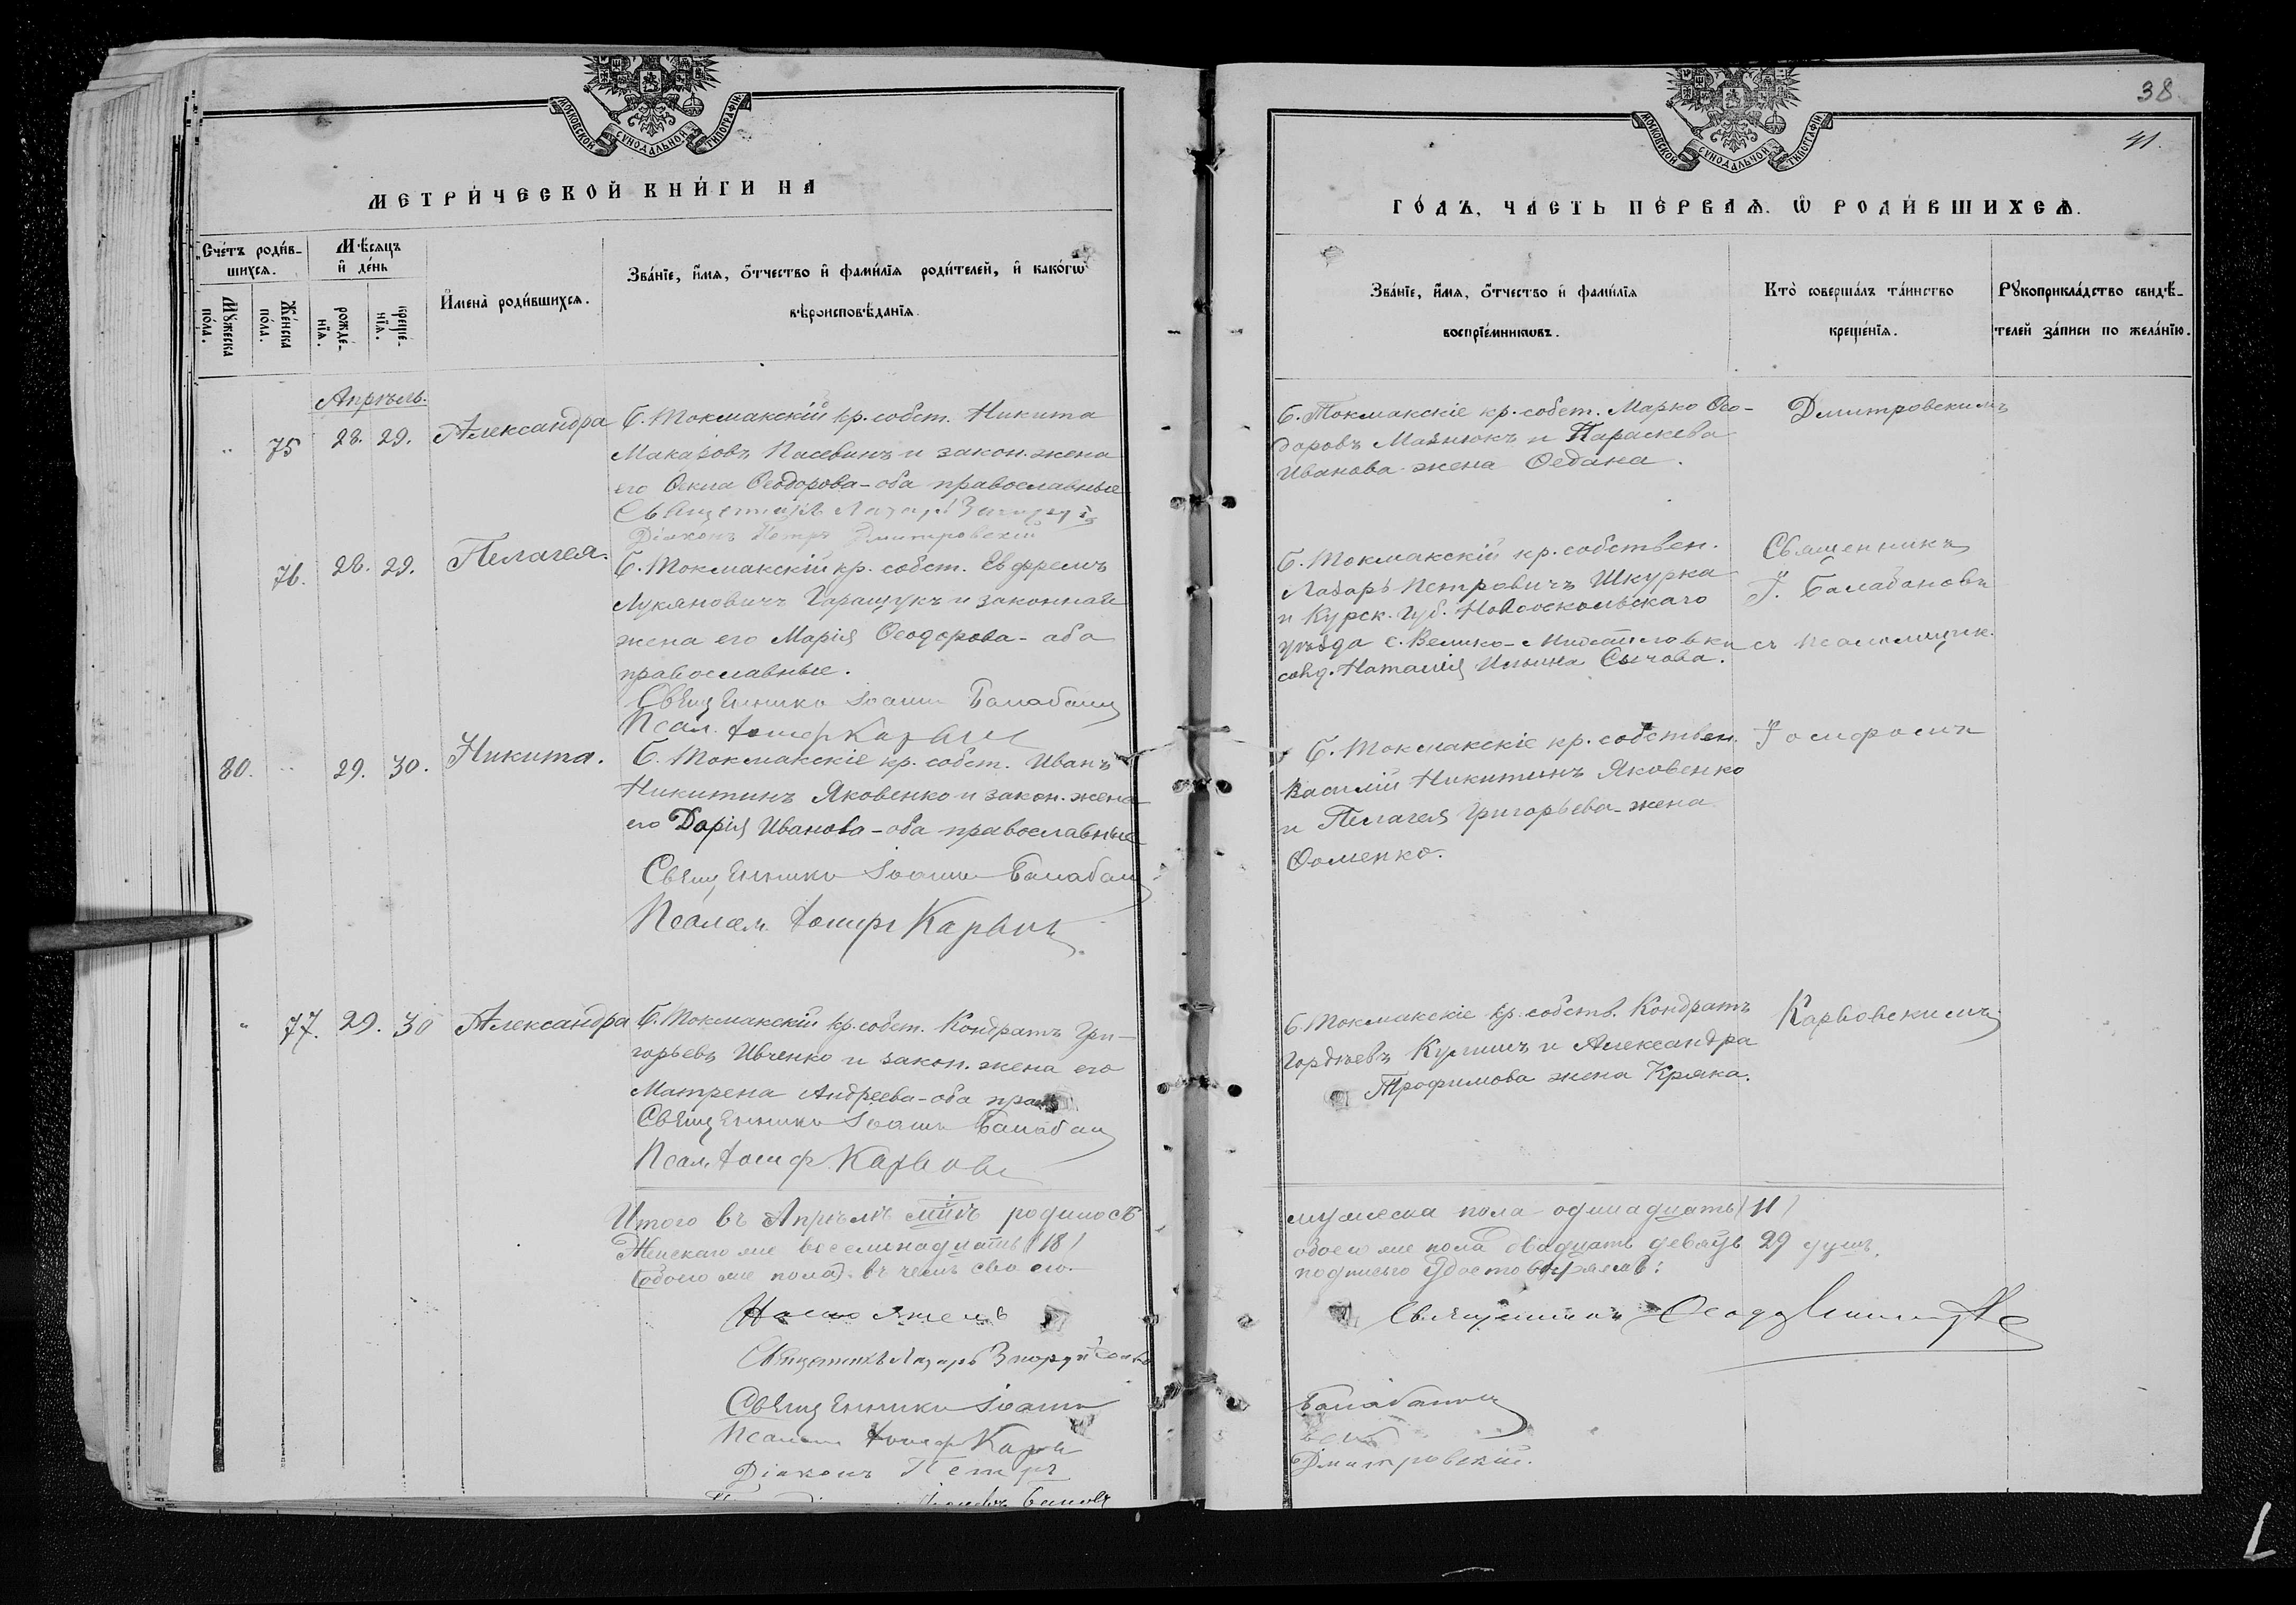 МОСКОВСКОЙ СѴНОДАЛЬНОЙ ТИПОГРАФІИ.
МЕТРИ́ЧЕСКОЙ КНИ́ГИ НА
Сче́тъ роди́в-
шихся.
Мѣ́сяцъ
и҆ де́нь
Мꙋ́жеска
по́ла.
Же́нска
по́ла.
рожде́-
нїѧ.
креще́-
нїѧ.
И҆мена̀ роди́вшихсѧ.
Зва́нїе, и҆́мѧ, ѻ҆́тчество и҆ фами́лїѧ роди́телей, и҆ како́гѡ
вѣроисповѣ́данїѧ.
Апрѣль.
" 75 28. 29. Александра
Б. Токмакскій кр. собст. Никита
Макаровъ Пасевинъ и закон. жена
его Ѳекла Ѳеодорова - оба православные
Священникъ Лазарь
Діаконъ Петръ Дмитровскій
76. 28. 29. Пелагея.
Б. Токмакскій кр. собст. Евфремъ
Лукяновичъ Гаращукъ и законная
жена его Марія Ѳеодорова - оба
православные.
Священникъ Іоаннъ Балабанъ
Псал. Іосиф
80. " 29. 30. Никита.
Б. Токмакскіе кр. собст. Иванъ
Никитинъ Яковенко и закон. жена
его Дарія Иванова - оба православные
Священникъ Іоаннъ Балабан
Псалом. Іосифъ
" 77. 29. 30 Александра
Б. Токмакскій кр. собст. Кондратъ Гри-
горьевъ Ивченко и закон. жена его
Матрена Андреева - оба прав
Священникъ Іоаннъ Балабан
Псал. Іосиф Карвов
Итого въ Апрѣлѣ мцѣ родилось
Женскаго же восемнадцать (18)
(обоего же пола). въ чемъ своею
Настоятель
Священникъ Лазарь
Священникъ Іоаннъ
Псалом Іосиф Карв
Діаконъ Петръ
38
41.
МОСКОВСКОЙ СѴНОДАЛЬНОЙ ТИПОГРАФІИ.
ГО́ДЪ, ЧА́СТЬ ПЕ́РВАѦ. Ѡ҆ РОДИ́ВШИХСѦ.
Зва́нїе, и҆́мѧ, ѻ҆́тчество и҆ фами́лїѧ
воспрїе́мникωвъ.
Кто̀ соверша́лъ та́инство
креще́нїѧ.
Рꙋкоприкла́дство свидѣ́-
телей за́писи по жела́нїю.
Б. Токмакскіе кр. собст. Марко Ѳео-
доровъ Мазнюкъ и Параскева
Иванова жена Ѳедана.
Дмитровскимъ
Б. Токмакскій кр. собствен.
Лазарь Петровичъ Шкурка
и Курск. губ. Новооскольскаго
уѣзда с. Велико-Михайловки
Наталія Ильина Сычова.
Священникъ
І. Балабановъ
съ псаломщик.
Б. Токмакскіе кр. собствен.
Василій Никитинъ Яковенко
и Пелагея Григорьева - жена
Ѳоменко.
Іосифомъ
Б. Токмакскіе кр. собств. Кондратъ
Гордѣевъ Кулишъ и Александра
Трофимова жена Кряка.
Карвовскимъ
мужеска пола одинадцать (11)
обоего же пола двадцать девять 29 душъ,
подписью удостовѣряемъ:
Священникъ
Балабанъ
Дмитровскій.